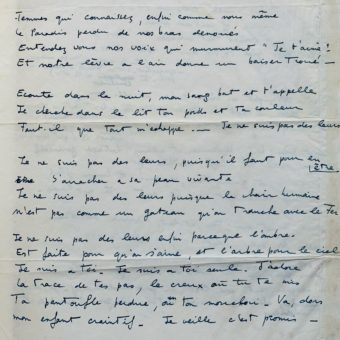 Femmes qui connaissez, enfin comme nous même
le Paradis perdu de nos bras dénoués
Entendez vous nos voix qui murmurent "Je t'aime!
Et notre lèvre a l'air donne un baiser Troué —
Ecoute dans le nuit, mon sang bat et t'appelle
Je cherche dans le lit ton poids et ta couleur
Faut-il que tout m'echappe. — Je ne suis pas des leurs
Je ne suis pas des leurs, puisqu'il faut pour en
être
S'arracher a sa peau vivante
Je ne suis pas des leurs puisque la chair humaine
n'est pas comme un gateau qu'on tranche avec le Fer
Je ne suis pas des leurs enfin parceque l'arbre.
Est faite pour qu'on s'aime, et l'arbre pour le ciel
Je suis a toi. Je suis a toi seule. J'adore
la trace de tes pas, le creux où tu te mis
Ta pantoufle perdue, ou ton mouchoir. Va, dors
mon enfant craintif — Je veille c'est promis —